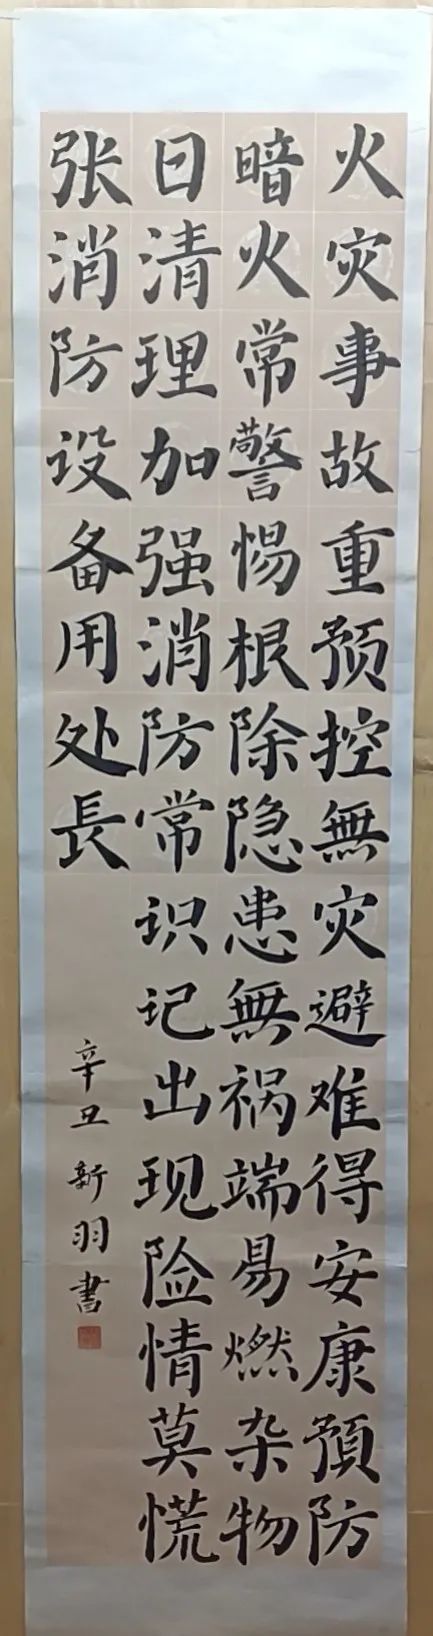 火灾事故重预控無灾避难得安康預防
暗火常警惕根除隐患無祸端易燃杂物
日清理加强消防常识记出现险情莫慌
张消防设备用处長
辛丑 新羽書